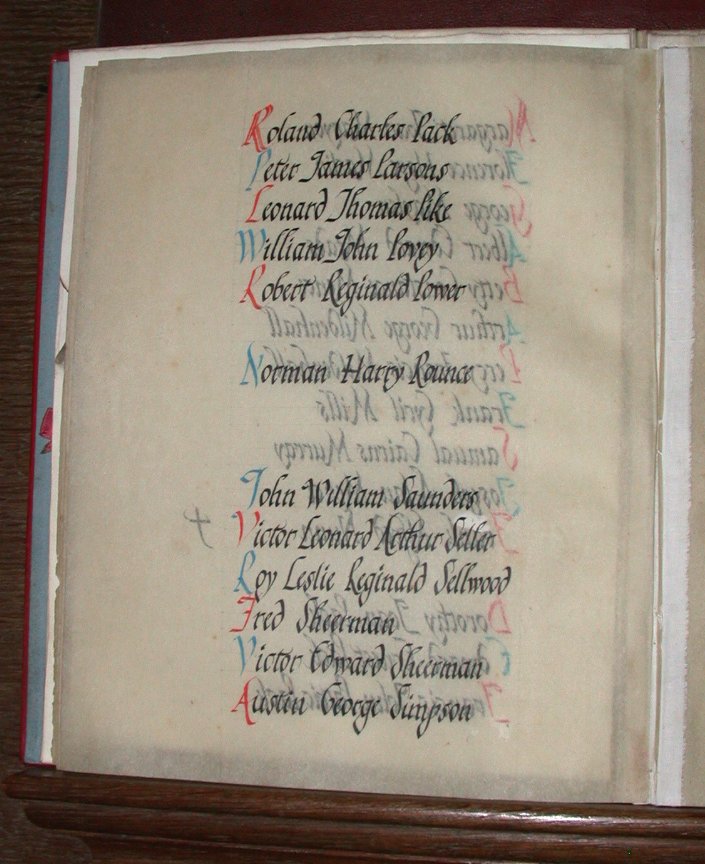 Roland Charles Pack
Peter James Parsons
Leonard Thomas Pike
William John Povey
Robert Reginald Power
Norman Harry Rounce
John William Saunders
Victor Leonard Arthur Seller
Roy Leslie Reginald Sellwood
Fred Sheerman
Victor Edward Sheerman
Austin George Simpson